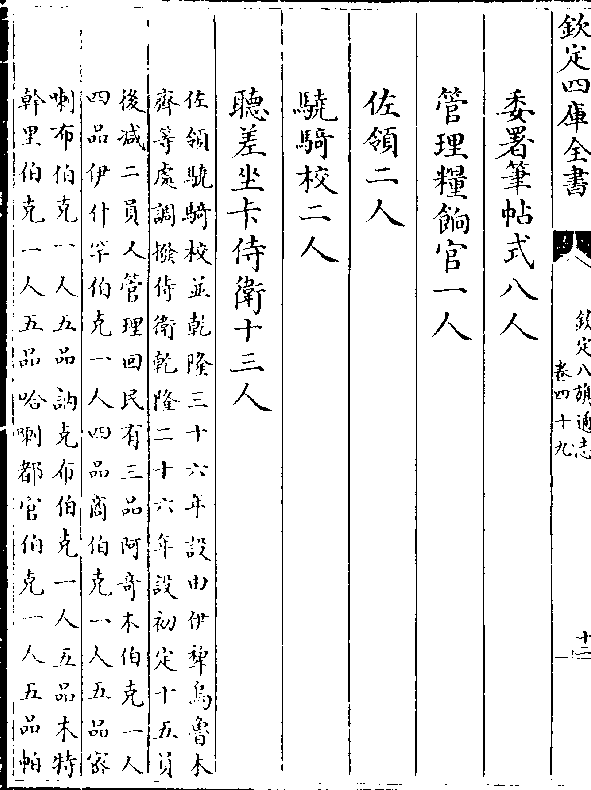 欽定四庫全書
欽定八旗通志
卷四十九
十二
委署筆帖式八人
管理糧餉官一人
佐領二人
驍騎校二人
聽差坐卡侍衛十三人
佐領驍騎校並乾隆三十六年設由伊犂烏魯木
齊等處調撥侍衛乾隆二十六年設初定十五員
後減二員人管理回民有三品阿奇木伯克一人
四品伊什罕伯克一人四品商伯克一人五品宻
喇布伯克一人五品訥克布伯克一人五品木特
幹里伯克一人五品哈喇都官伯克一人五品帕